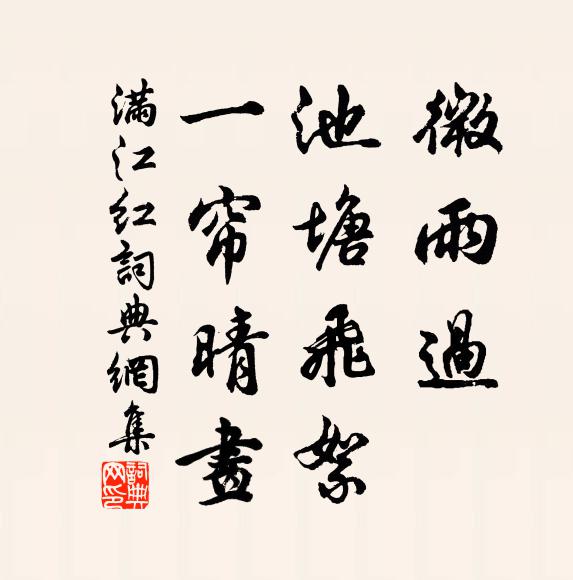 微雨過
池塘飛絮
一帘晴晝
滿江紅詞典網集
詞典
网印